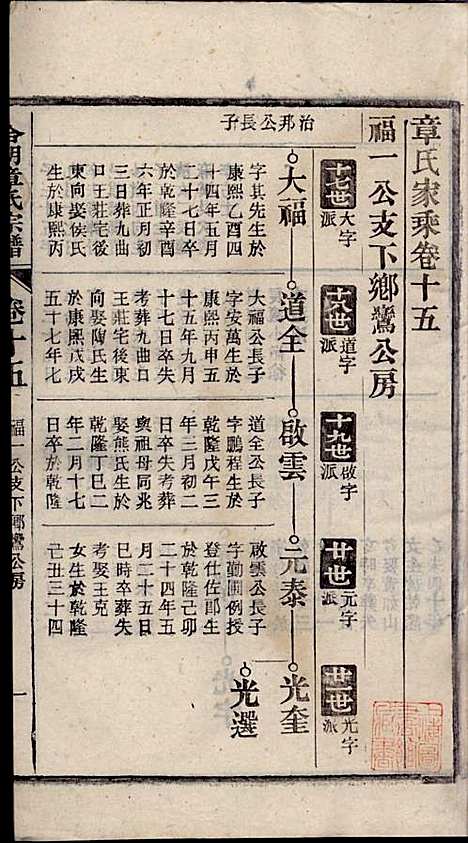 章氏家乘卷十五
福一公支下鄉鸞公房
十七世
大字
派
十八世
道字
派
十九世
啟字
派
廿世
元字
派
廿一世
光字
派
治邦公長子
大福
道全
啟雲
元泰
光奎
光選
字其先生於
康熙乙酉四
十四年五月
十七日卒
於乾隆辛酉
六年正月初
三日葬九曲
口王莊宅後
東向娶侯氏
生於康熙丙
大福公長子
字安萬生於
康熙丙申五
十五年九月
十七日卒失
考葬九曲口
王莊宅後東
向娶陶氏生
於康熙戊戌
五十七年七
道全公長子
字鵬程生於
乾隆戊午三
年三月初二
日卒失考葬
與祖母同兆
娶熊氏生於
乾隆丁巳二
年二月十七
日卒於乾隆
啟雲公長子
字勤圃例授
登仕佐郎生
於乾隆己卯
二十四年五
月二十五日
巳時卒葬失
考娶王克
女生於乾隆
己丑三十四
章氏宗譜
卷十五
福一公支下鄉鸞公房
一